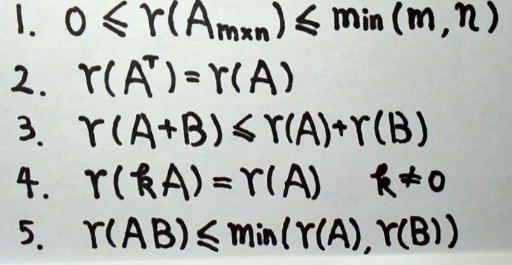 1. 0 ≤ r(Aₘₓₙ) ≤ min(m, n)
2. r(Aᵀ) = r(A)
3. r(A+B) ≤ r(A)+r(B)
4. r(kA) = r(A) k≠0
5. r(AB) ≤ min(r(A), r(B))